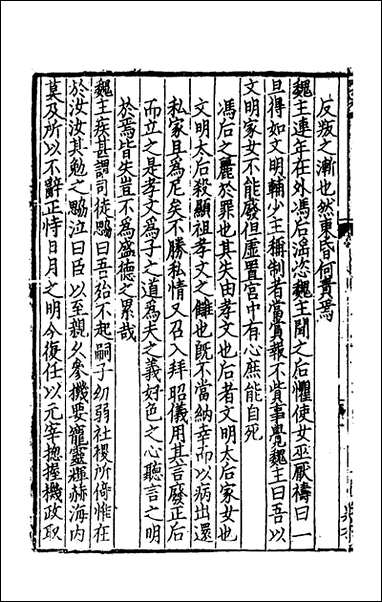 反叛之漸也然東昏何責焉
魏主連年在外馮后滛恣魏主聞之后懼使女巫厭禱曰一
旦得如文明輔少主稱制者當賞報不貲事覺魏主曰吾以
文明家女不能廢但虛置宫中有心庶能自死
馮后之麗於罪也其失由孝文也后者文明太后家女也
文明太后殺顯祖孝文之讎也旣不當納幸而以病出還
私家且爲尼矣不勝私情又召入拜昭儀用其言廢正后
而立之是孝文爲子之道爲夫之義好色之心聽言之明
於焉皆失豈不爲盛德之累哉
魏主疾甚謂司徒勰曰吾殆不起嗣子幼弱社稷所倚惟在
於汝汝其勉之勰泣曰臣以至親乆參機要寵靈輝赫海内
莫及所以不辭正恃日月之明今復任以元宰揔握機政取